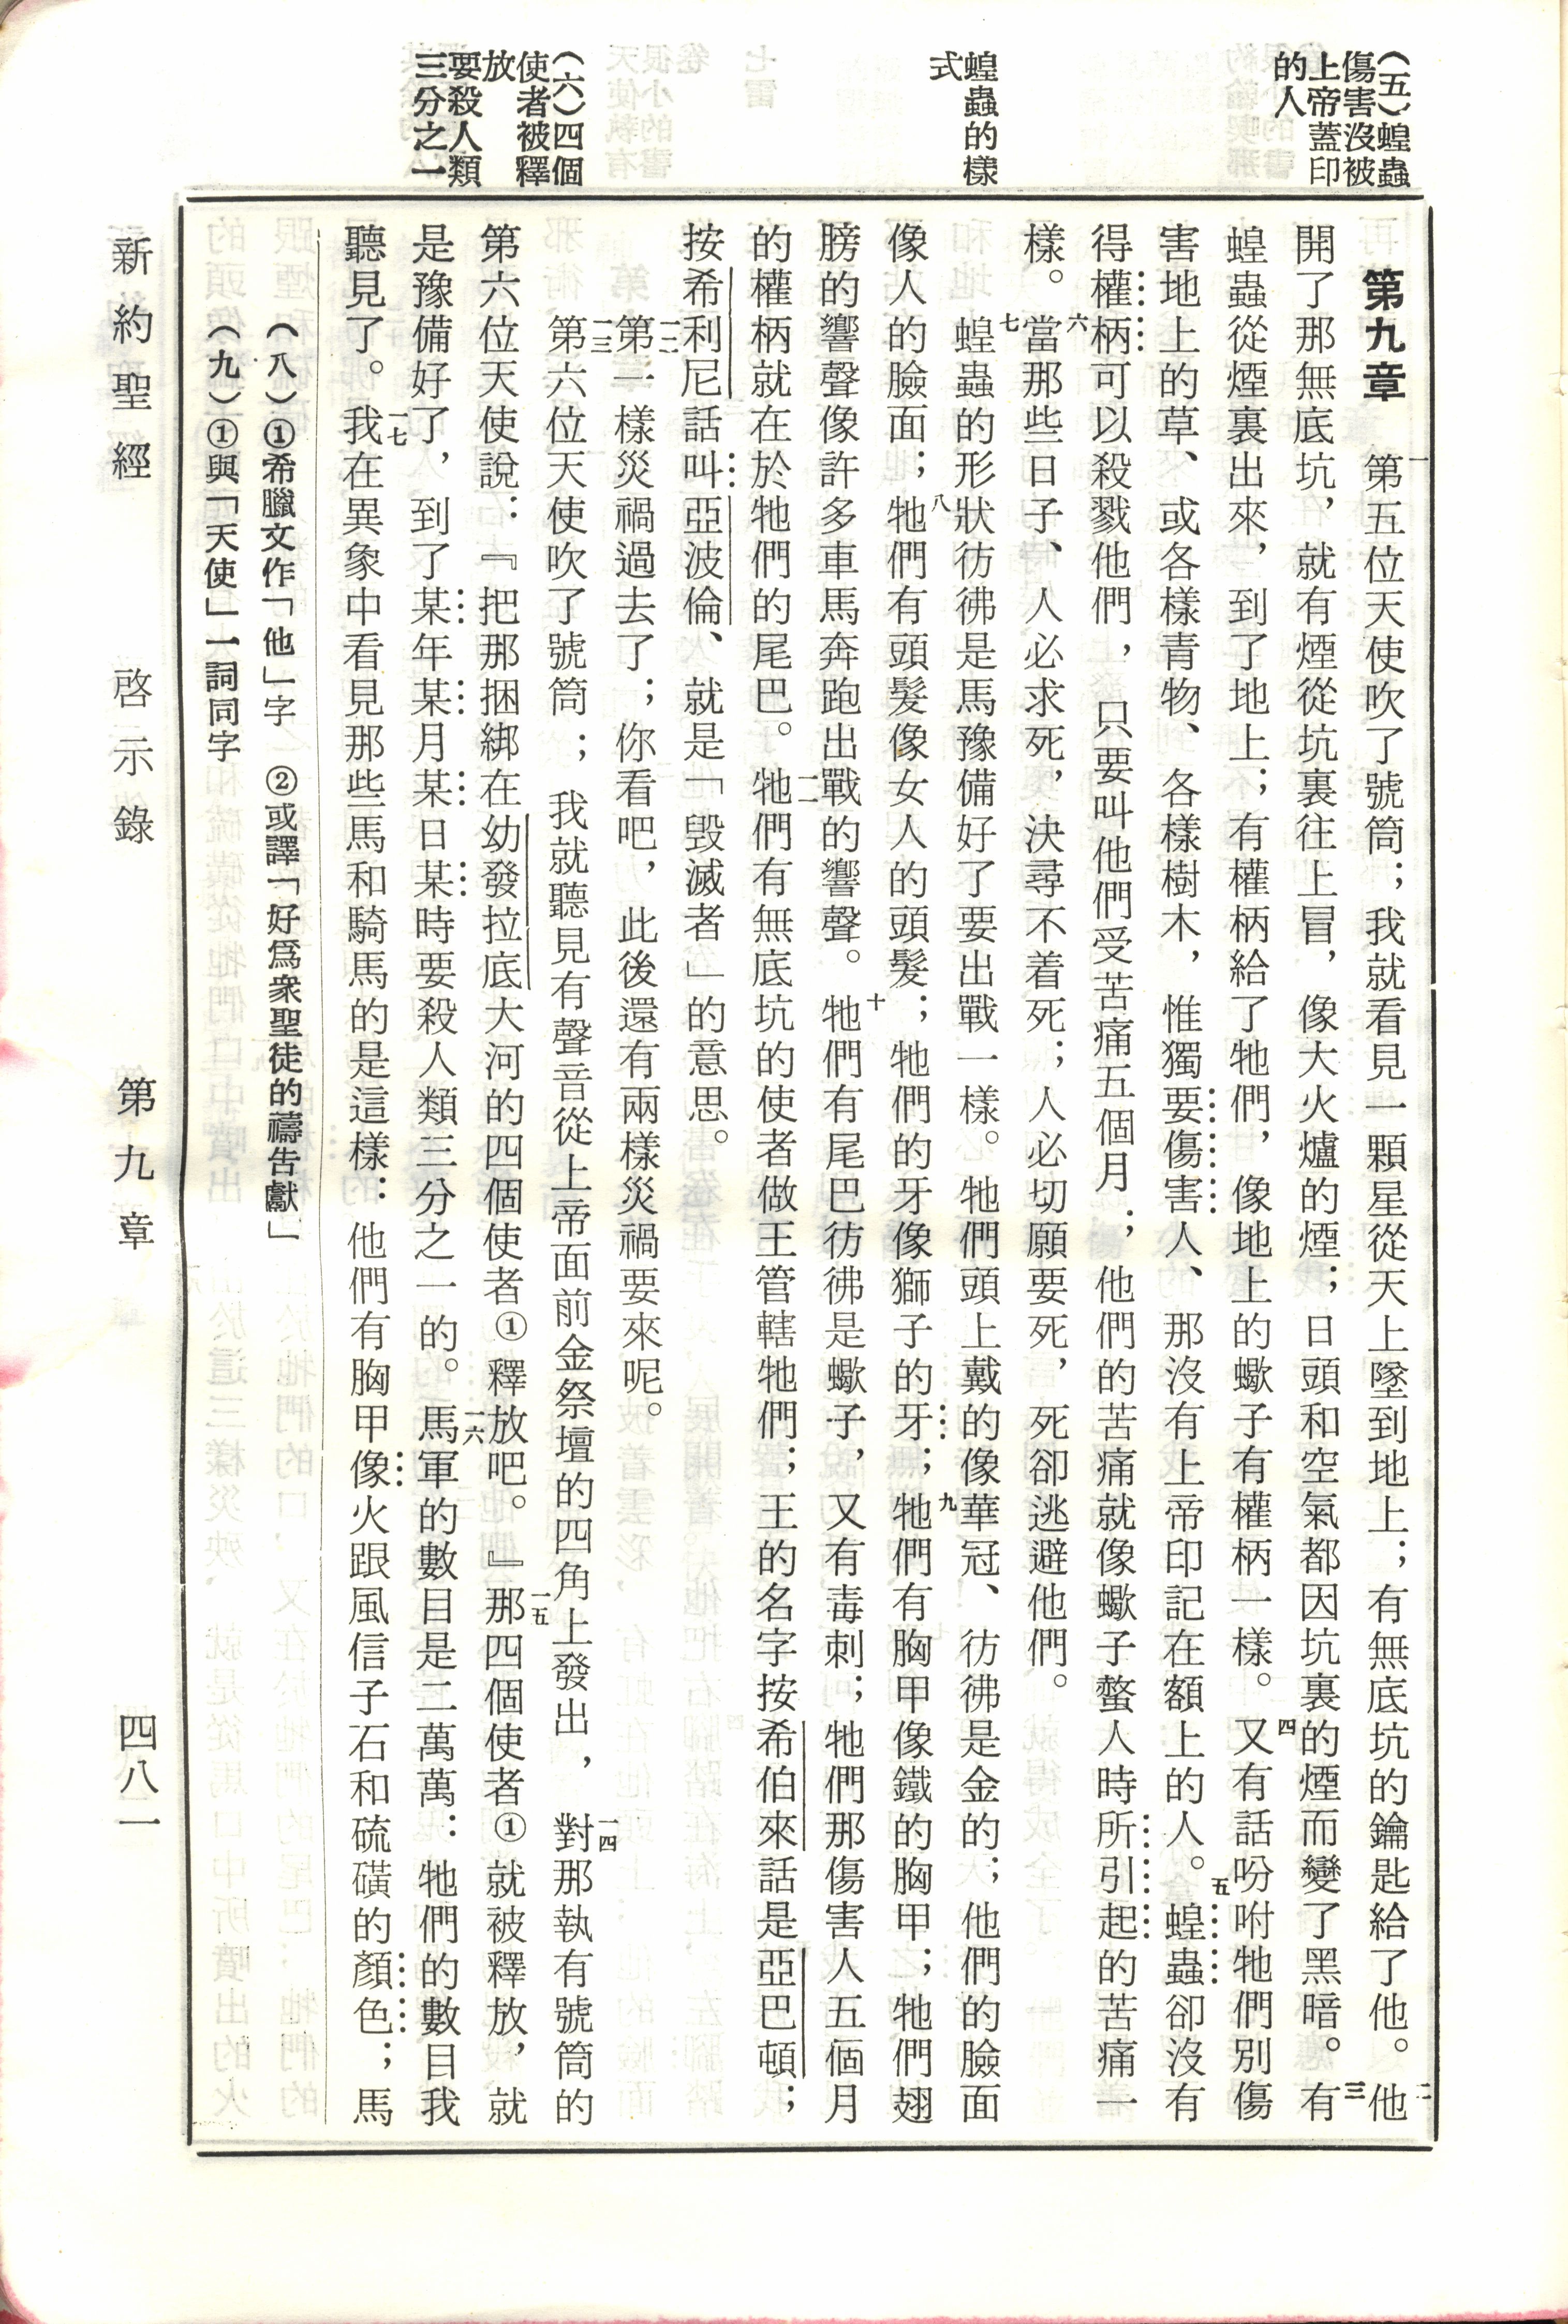 (五)蝗蟲
傷害沒被
上帝蓋印
的人
蝗蟲的樣
式
(六)四個
使者被釋
放
要殺人類
三分之一
第九章 一第五位天使吹了號筒；我就看見一顆星從天上墜到地上；有無底坑的鑰匙給了他。二他
開了那無底坑，就有煙從坑裏往上冒，像大火爐的煙；日頭和空氣都因坑裏的煙而變了黑暗。三有
蝗蟲從煙裏出來，到了地上；有權柄給了牠們，像地上的蠍子有權柄一樣。四又有話吩咐牠們別傷
害地上的草、或各樣青物、各樣樹木，惟獨要傷害人、那沒有上帝印記在額上的人。五蝗蟲卻沒有
得權柄可以殺戮他們，只要叫他們受苦痛五個月；他們的苦痛就像蠍子螫人時所引起的苦痛一
樣。六當那些日子、人必求死，決尋不着死；人必切願要死，死卻逃避他們。
七蝗蟲的形狀彷彿是馬豫備好了要出戰一樣。牠們頭上戴的像華冠、彷彿是金的；他們的臉面
像人的臉面；八牠們有頭髮像女人的頭髮；牠們的牙像獅子的牙；九牠們有胸甲像鐵的胸甲；牠們翅
膀的響聲像許多車馬奔跑出戰的響聲。十牠們有尾巴彷彿是蠍子，又有毒刺；牠們那傷害人五個月
的權柄就在於牠們的尾巴。一一牠們有無底坑的使者做王管轄牠們；王的名字按希伯來話是亞巴頓；
按希利尼話叫亞波倫、就是「毀滅者」的意思。
一二第一樣災禍過去了；你看吧，此後還有兩樣災禍要來呢。
一三第六位天使吹了號筒；我就聽見有聲音從上帝面前金祭壇的四角上發出，一四對那執有號筒的
第六位天使說：『把那捆綁在幼發拉底大河的四個使者①釋放吧。』一五那四個使者①就被釋放，就
是豫備好了，到了某年某月某日某時要殺人類三分之一的。一六馬軍的數目是二萬萬：牠們的數目我
聽見了。一七我在異象中看見那些馬和騎馬的是這樣：他們有胸甲像火跟風信子石和硫磺的顏色；馬
(八)①希臘文作「他」字 ②或譯「好爲衆聖徒的禱告獻」
(九)①與「天使」一詞同字
新約聖經 啓示錄 第九章 四八一